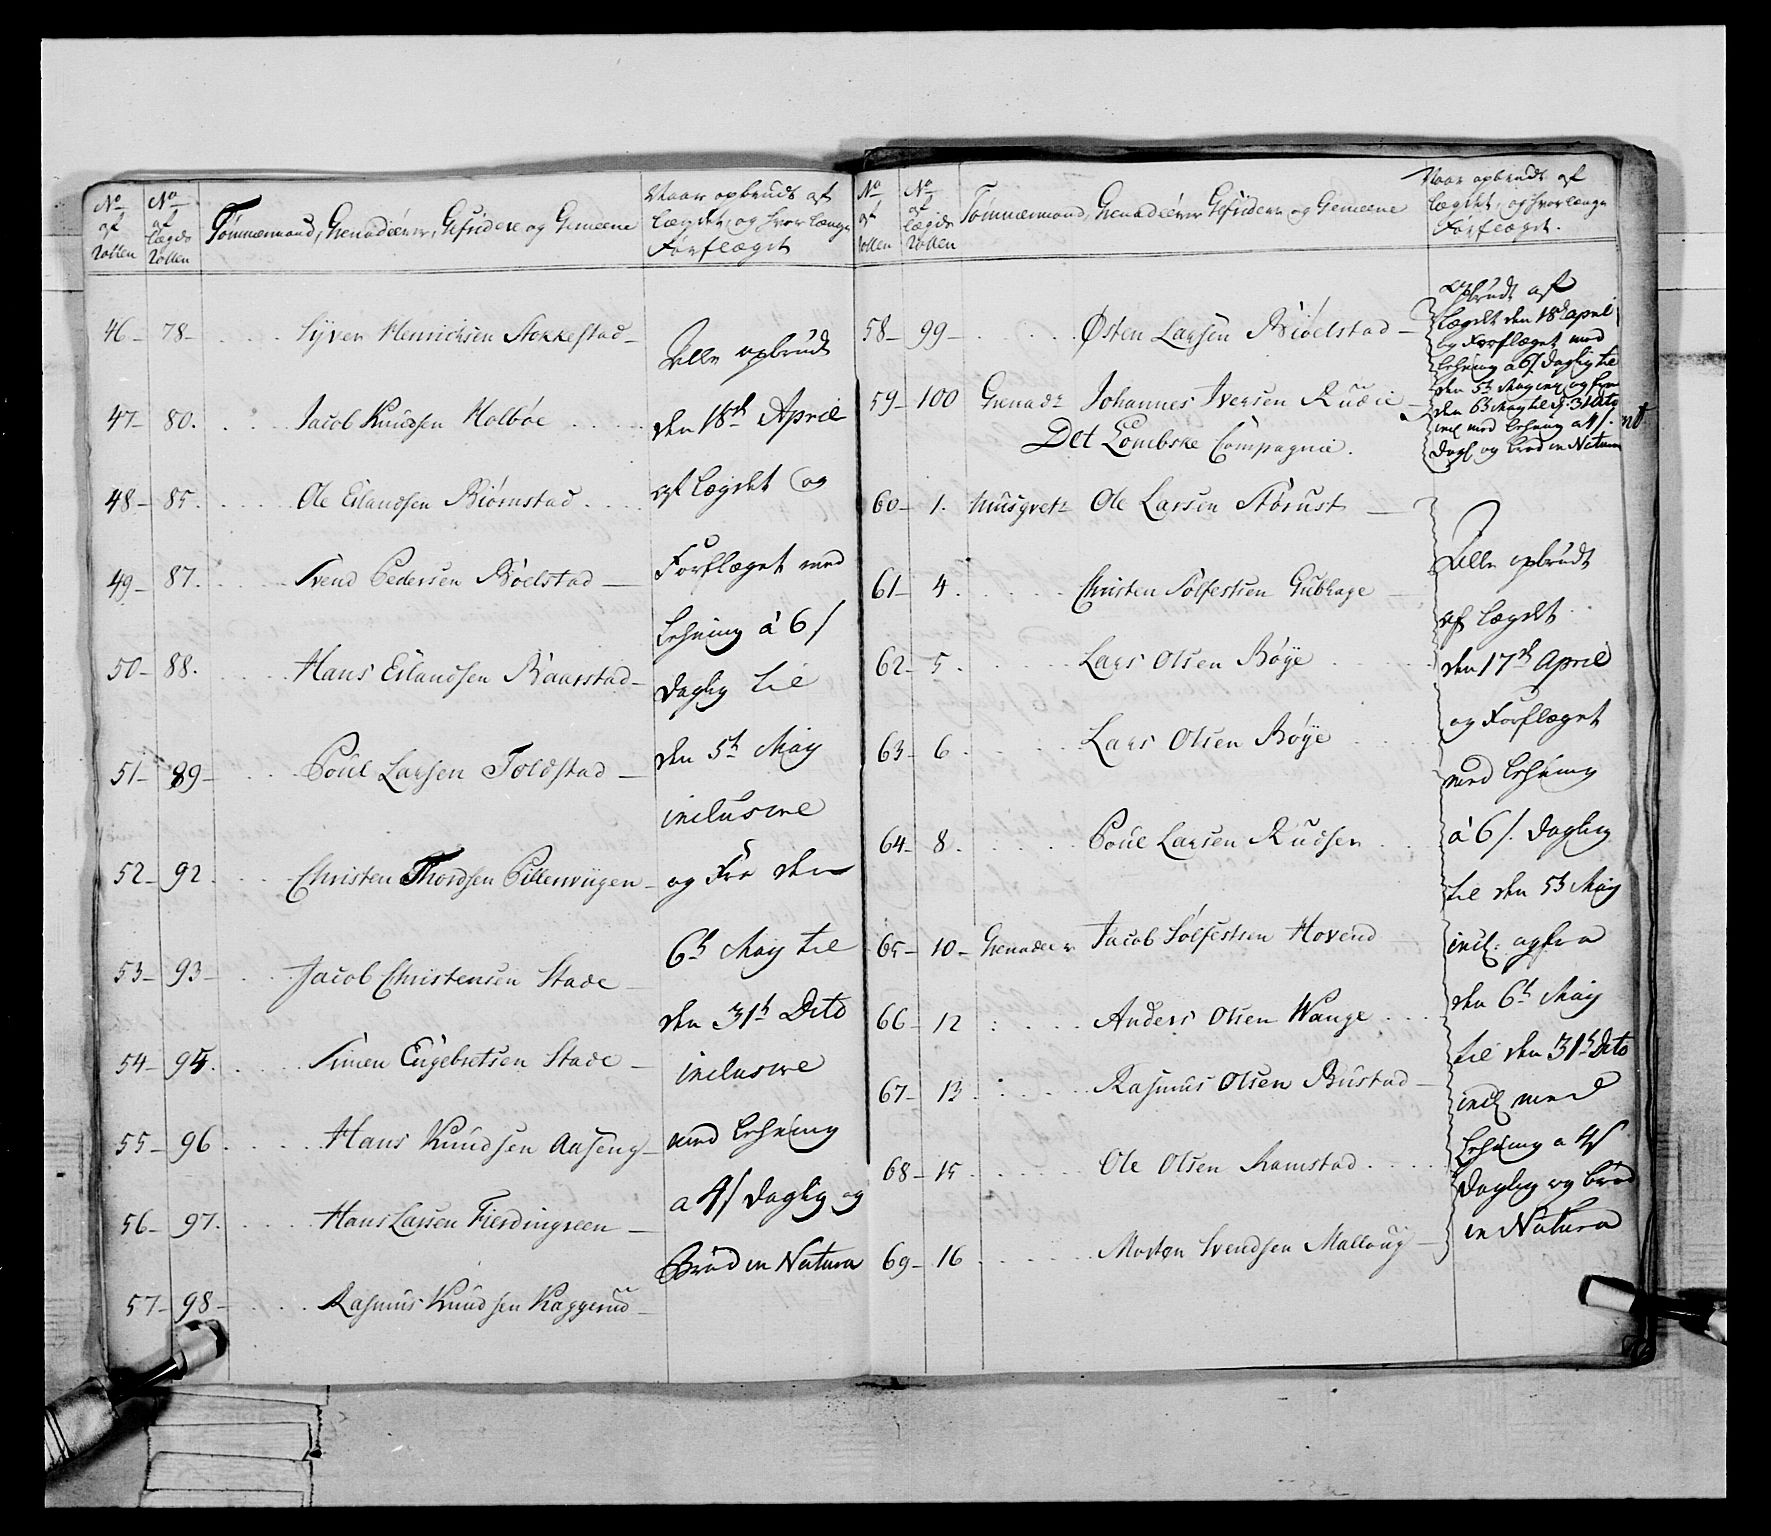 No af Rollen
No af Lægds Rollen
Tømmermænd, Grenadeerer, Gefridere og Gemeene
Naar opbrudt af
Lægdet, og hvor længe
Forflæget
46 - 78 - Syver Henrichsen Stokkestad -
47 - 80. Jacob Knudsen Holbøe
48 - 85. Ole Erlandsen Biørnstad
49 - 87. Svend Pedersen Bøelstad -
50 - 88. Hans Erlandsen Baarstad -
51 - 89 - Poul Larsen Toldstad -
52 - 92. Christen Thordsen Pillerviigen -
53 - 93 - Jacob Christensen Stade -
54 - 95. Simen Engebretsen Stade -
55 - 96. Hans Knudsen Aaseng -
56 - 97. Hans Larsen Fierdingreen -
57 - 98 - Rasmus Knudsen Kaggerud -
Alle opbrudt
den 18de April
af Lægdet og
Forflæget med
Lehning à 6 s
daglig til
den 5te May
inclusive
og Fra den
6te May til
den 31te Dito
inclusive
med Lehning
a 4 s daglig og
Brød in Natura
No af Rollen
No af Lægds Rollen
Tømmermænd, Grenadeerer Gefridere og Gemeene
Naar opbrudt af
Lægdet, og hvor længe
Forflæget.
58 - 99 - Østen Larsen Biøelstad -
59 - 100 Grenadr Johannes Iversen Rudie -
Opbrudt af
Lægdet den 18de April
og Forflæget med
Lehning a 6 s. daglig til
den 5te May incl og fra
den 6te May til d: 31 Dito
incl med Lehning a 4 s.
Dagl og brød in Natura
Det Lombske Compagnie.
60 - 1. Musqvetr Ole Larsen Størust -
61 - 4. Christen Sølfestsen Gubhage -
62 - 5. Lars Olsen Bøye
63 - 6. Lars Olsen Bøye
64 - 8. Poul Larsen Rudsen
65 - 10 - Grenadeer Jacob Sølfestsen Hovend
66 - 12 Anders Olsen Wange
67 - 13. Rasmus Olsen Bustad -
68 - 15 Ole Olsen Ramstad
69 - 16 Morten Svendsen Malloug -
Alle opbrudt
af Lægdet
den 17de April
og Forflæget
med Lehning
à 6 s. daglig
til den 5te May
incl: og fra
den 6te May
til den 31te Dito
incl med
Lehning a 4 s
Daglig og brød
in Natura